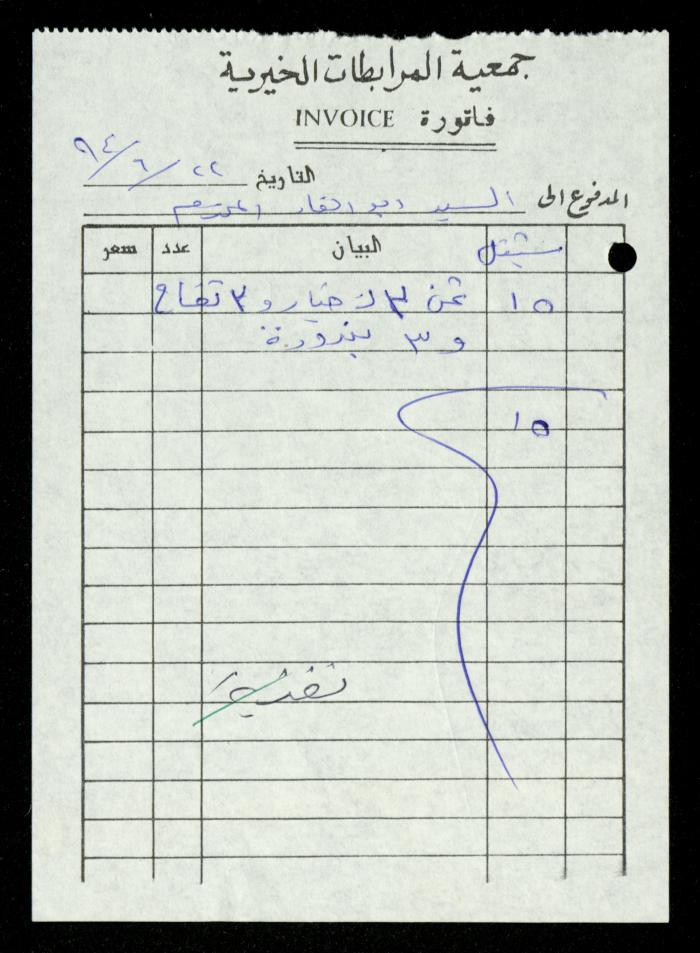 جمعية المرابطات الخيرية
فاتورة INVOICE
التاريخ ٢٢/٦/٩٤
المدفوع الى السيد ابو المحترم
شيقل البيان عدد سعر
١٥ ثمن ٣ ك خيار و ٢ تفاح
و ٣ بندورة
١٥
نقدية